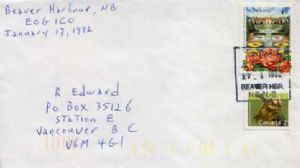 Beaver Harbour, NB
E0G 1C0
January 17, 1992
17 I 1992
BEAVER HBR.
N.B.
Canada
R Edward
Po Box 35126
Station E
Vancouver B C
V6M 4G1